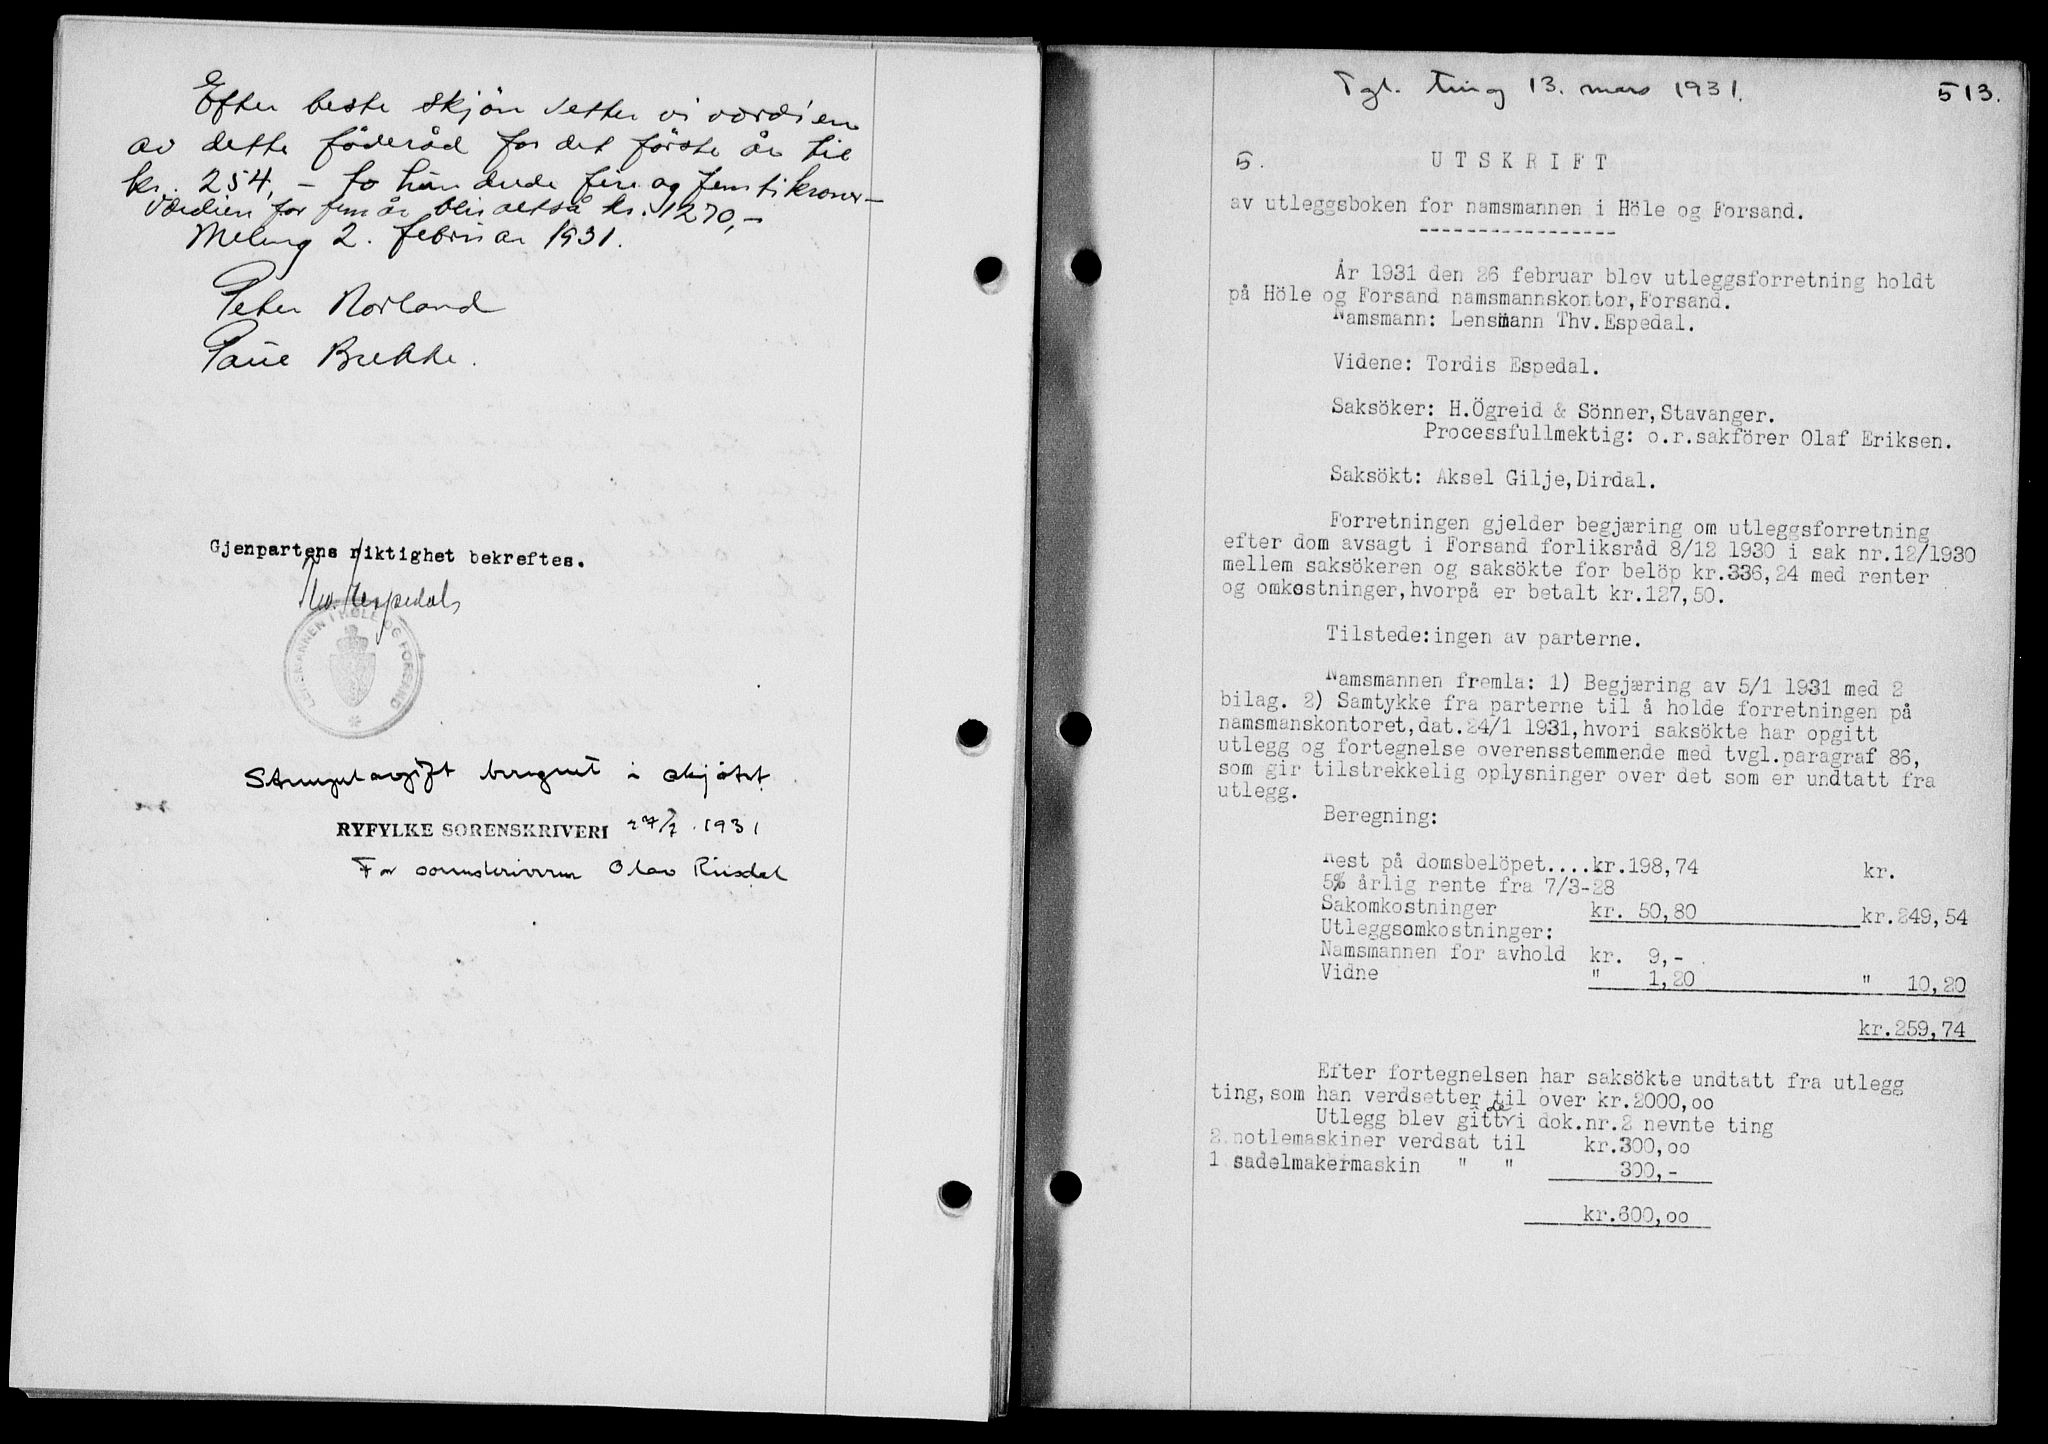 Efter beste skjön setter vi værdien
av dette föderåd for det förste år til
kr. 254,- to hundrede fire og femti kroner-
Værdien for fem år blir altså kr. 1270,-
Meling 2. februar 1931.
Peter Norland
Paul Brekke.
Gjenpartens riktighet bekreftes.
Thv. Espedal
LENSMANNEN I HØLE OG FORSAND
Stempelavgift beregnet i skjötet.
RYFYLKE SORENSKRIVERI 27/2 1931
For sorenskriveren Olav Riisdal
Tgl. ting 13. mars 1931. 513.
5. UTSKRIFT
av utleggsboken for namsmannen i Höle og Forsand.
-----------------
År 1931 den 26 februar blev utleggsforretning holdt
på Höle og Forsand namsmannskontor, Forsand.
Namsmann: Lensmann Thv. Espedal.
Videne: Tordis Espedal.
Saksöker: H.Ögreid & Sönner, Stavanger.
Processfullmektig: o.r.sakförer Olaf Eriksen.
Saksökt: Aksel Gilje, Dirdal.
Forretningen gjelder begjæring om utleggsforretning
efter dom avsagt i Forsand forliksråd 8/12 1930 i sak nr.12/1930
mellem saksökeren og saksökte for belöp kr.336,24 med renter
og omkostninger, hvorpå er betalt kr.127,50.
Tilstede: ingen av parterne.
Namsmannen fremla: 1) Begjæring av 5/1 1931 med 2
bilag. 2) Samtykke fra parterne til å holde forretningen på
namsmanskontoret, dat.24/1 1931, hvori saksökte har opgitt
utlegg og fortegnelse overensstemmende med tvgl.paragraf 86,
som gir tilstrekkelig oplysninger over det som er undtatt fra
utlegg.
Beregning:
Rest på domsbelöpet....kr.198,74 kr.
5% årlig rente fra 7/3-28
Sakomkostninger kr. 50,80 kr.249,54
Utleggsomkostninger:
Namsmannen for avhold kr. 9,-
Vidne " 1,20 " 10,20
kr.259,74
Efter fortegnelsen har saksökte undtatt fra utlegg
ting, som han verdsetter til over kr.2000,oo
Utlegg blev gitt i de i dok.nr.2 nevnte ting
2 notlemaskiner verdsat til kr.300,oo
1 sadelmakermaskin " " 300,-
kr.600,oo